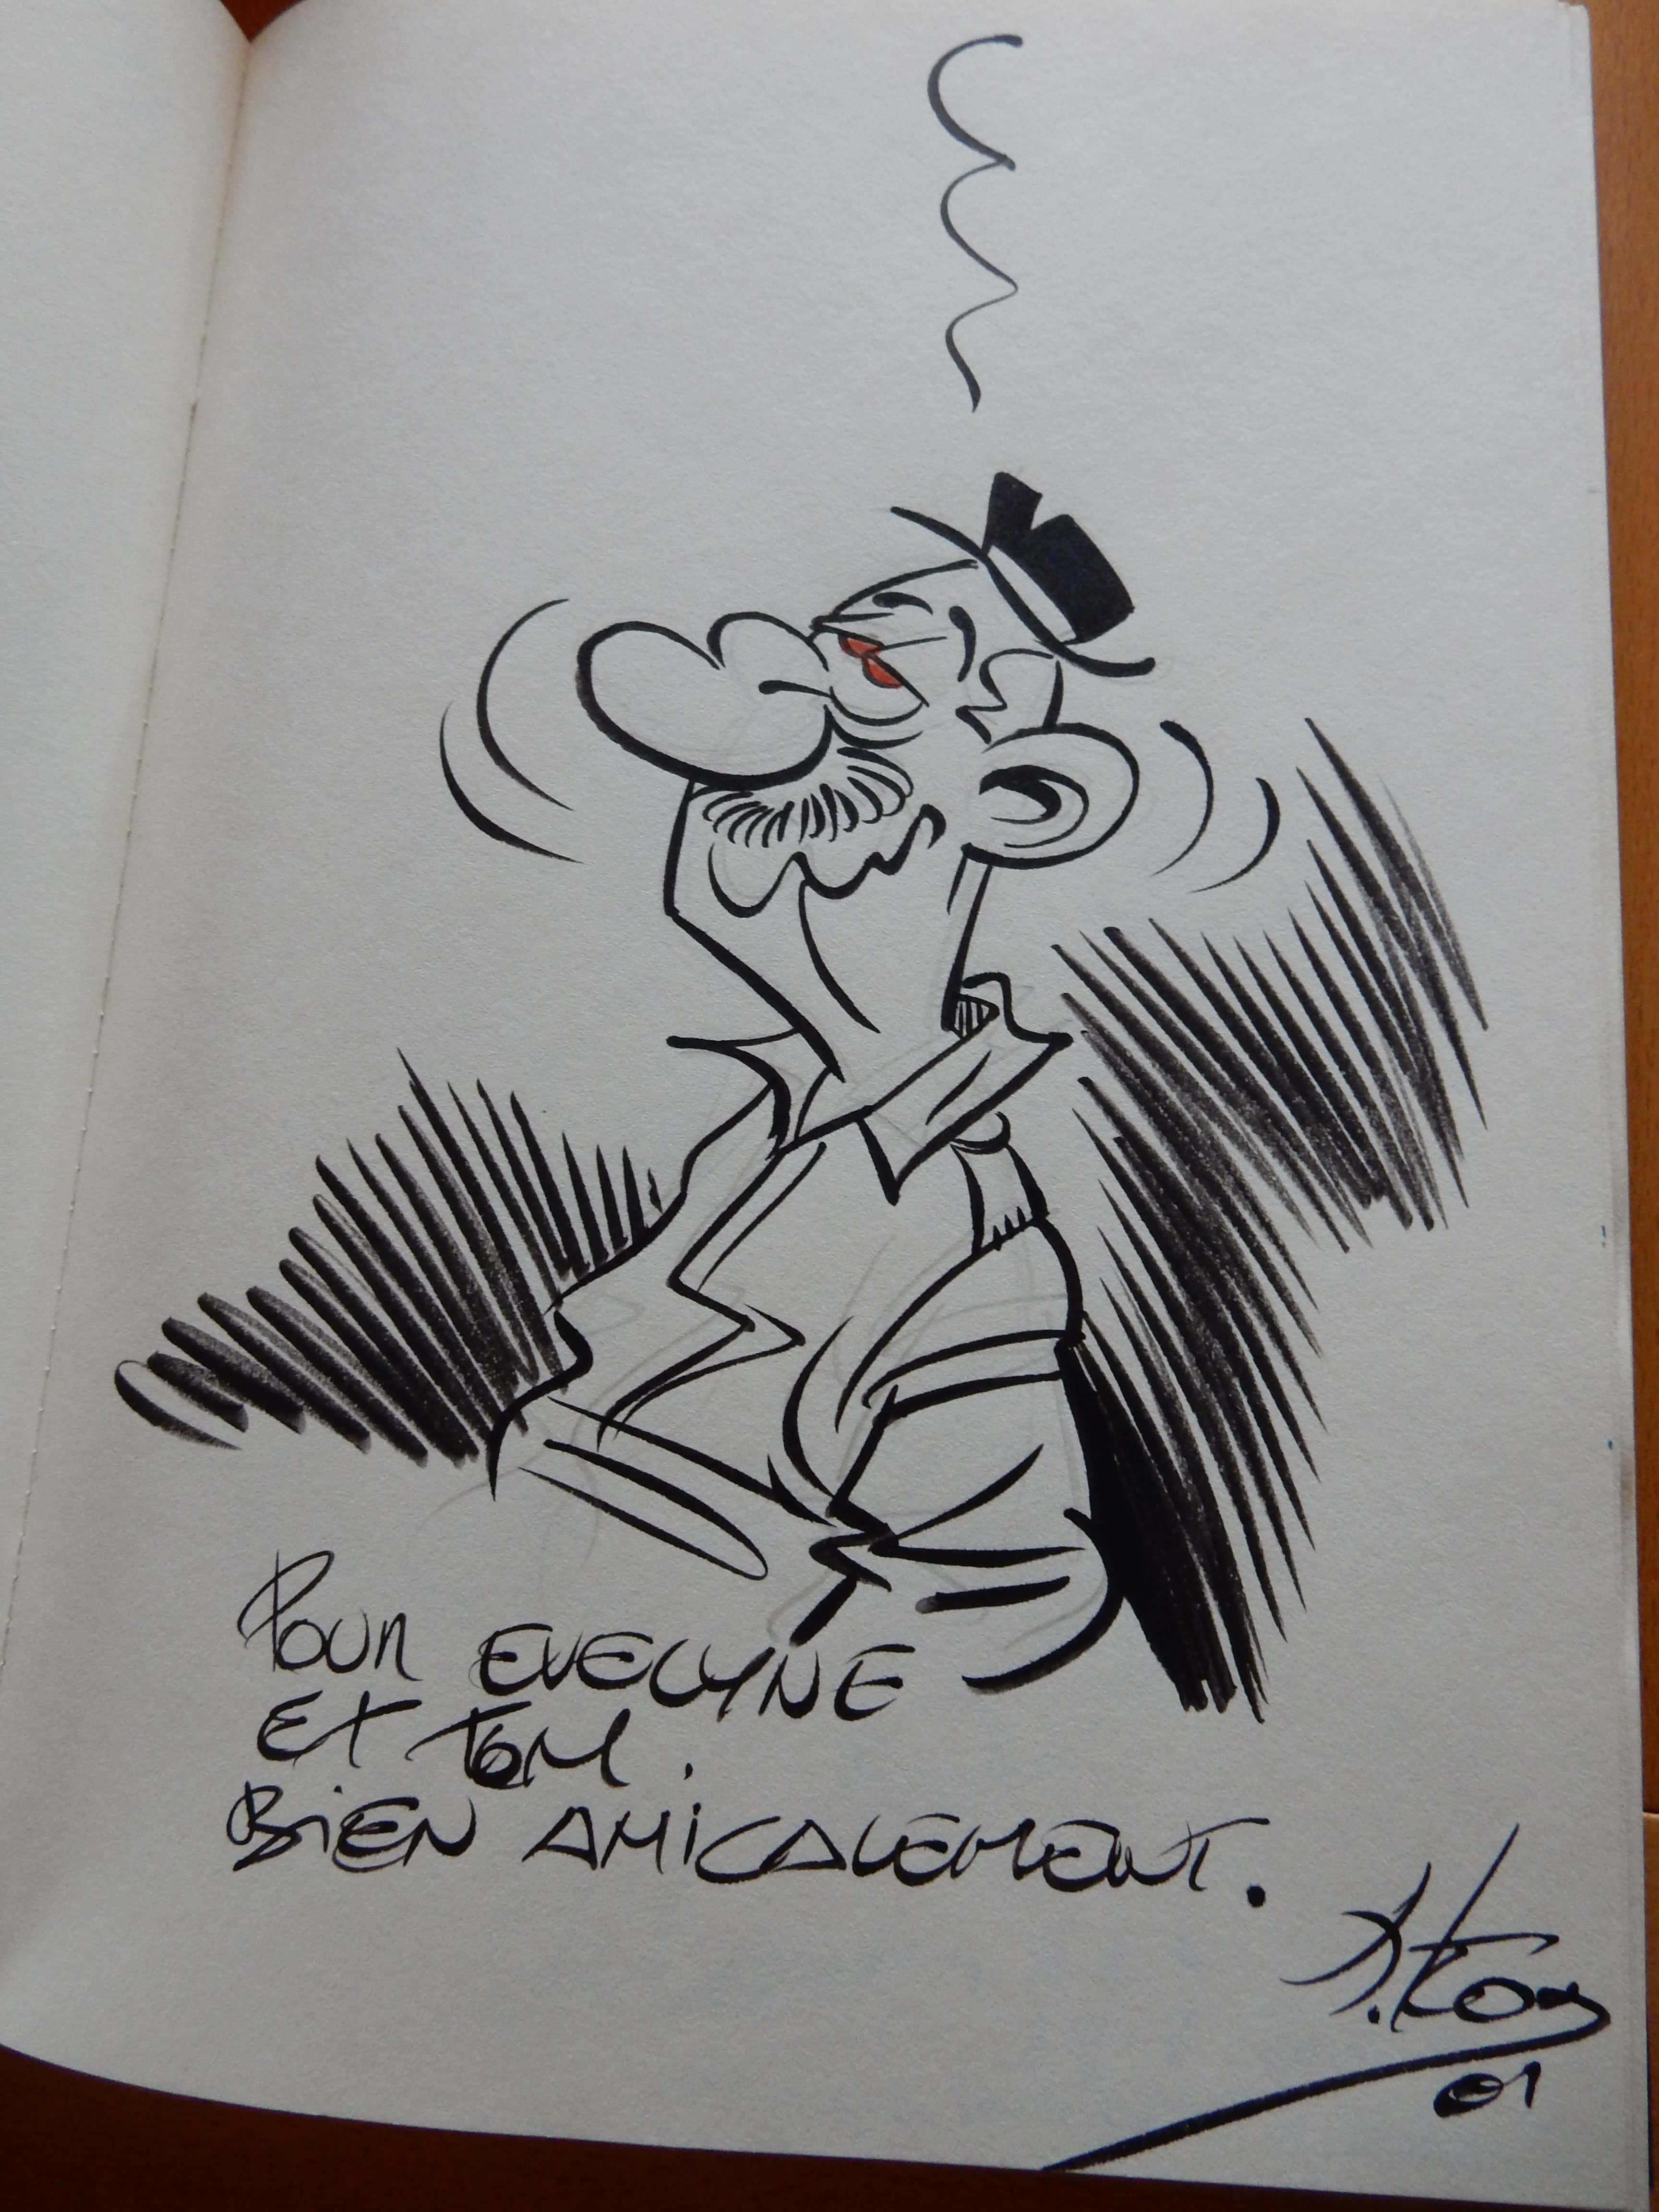 POUR EVELYNE
ET TOM.
BIEN AMICALEMENT.
01